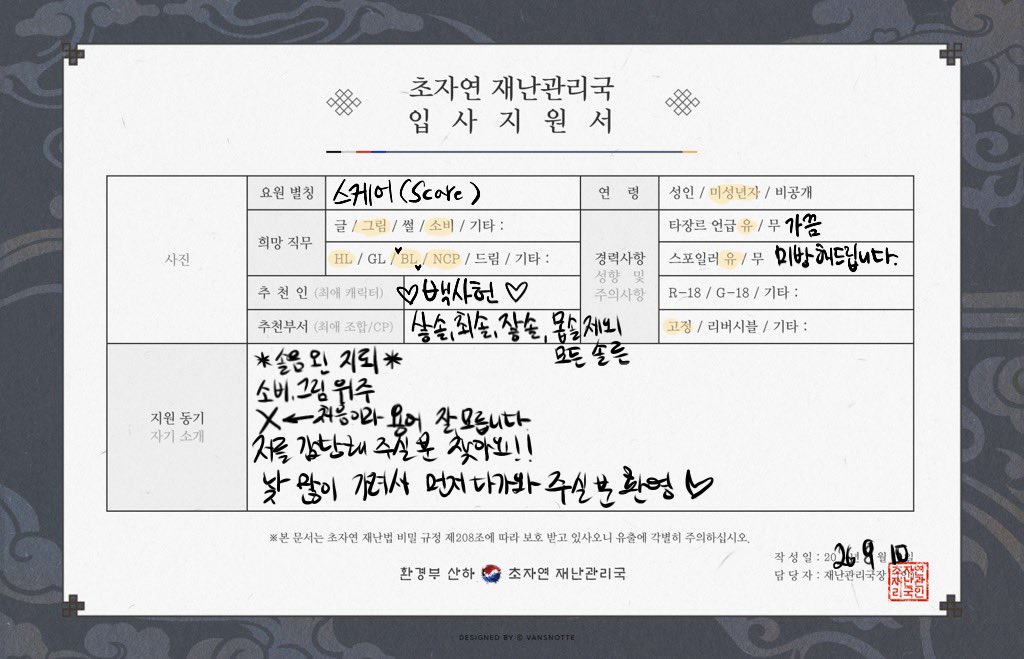 초자연 재난관리국
입사지원서
사진
요원 별칭 스케어(Score)
연 령 성인 / 미성년자 / 비공개
희망 직무 글 / 그림 / 썰 / 소비 / 기타 :
HL / GL / BL / NCP / 드림 / 기타 :
경력사항
성향 및
주의사항
타장르 언급 유 / 무 가끔
스포일러 유 / 무 미방해드립니다.
추 천 인 (최애 캐릭터) ♡백사헌♡
R-18 / G-18 / 기타 :
추천부서 (최애 조합/CP) 살솔, 최솔, 잘솔, 제외
모든 솔른
고정 / 리버시블 / 기타 :
지원 동기
자기 소개
*솔음왼 지뢰*
소비, 그림 위주
X ← 처음이라 용어 잘 모릅니다
저를 감당해 주실 분 찾아요!!
낯 많이 가려서 먼저 다가와 주실 분 환영 ♡
※본 문서는 초자연 재난법 비밀 규정 제208조에 따라 보호 받고 있사오니 유출에 각별히 주의하십시오.
작 성 일 : 20 26 9 월 10 일
담 당 자 : 재난관리국장
환경부 산하 초자연 재난관리국
초자연
재난관
리국인
DESIGNED BY © VANSNOTTE